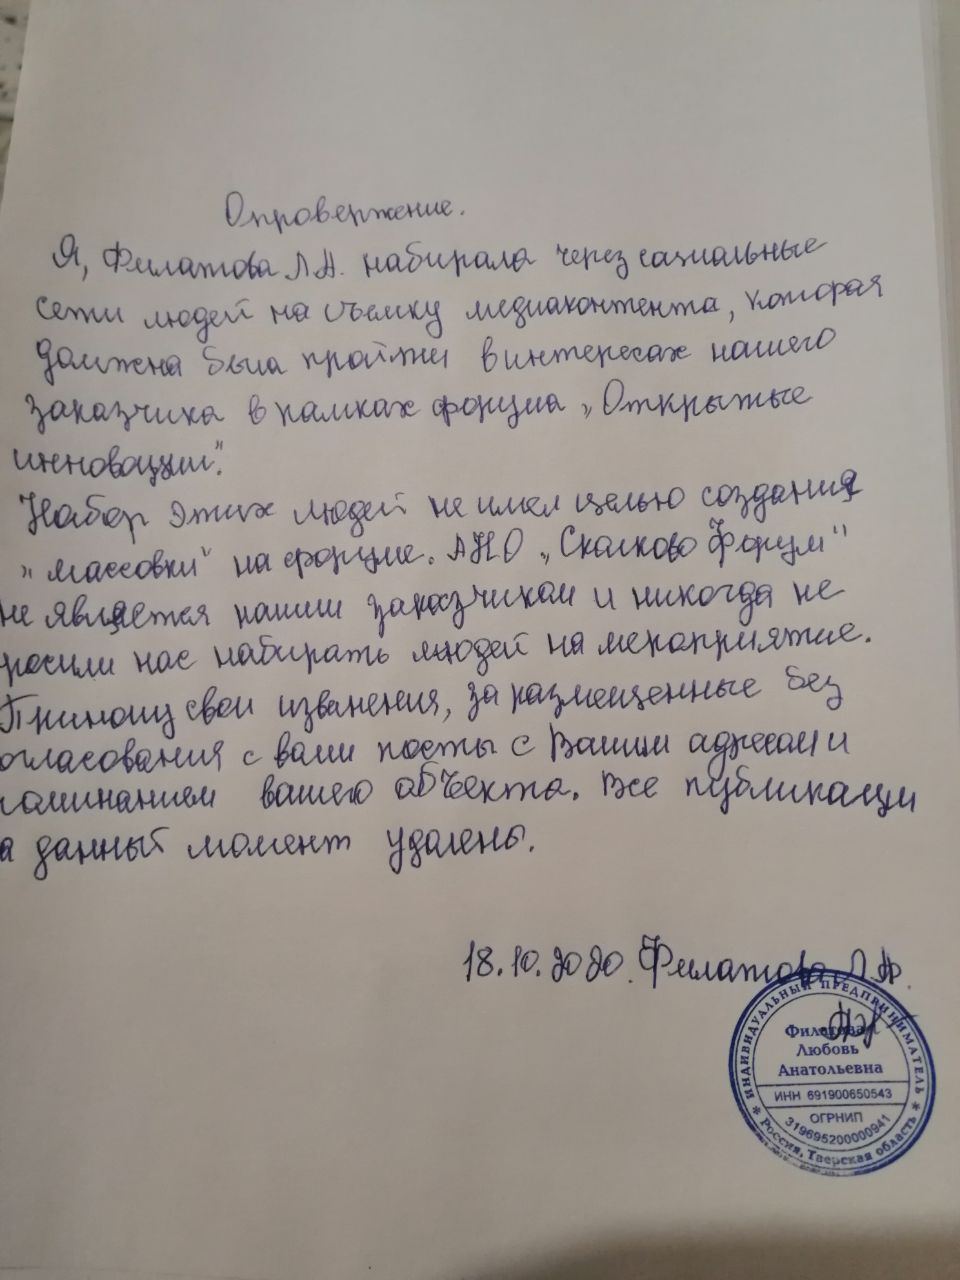 Опровержение.
Я, Филатова Л.А. набирала через социальные
сети людей на съемку медиаконтента, которая
должна была пройти в интересах нашего
заказчика в рамках форума „Открытые
инновации".
Набор этих людей не имел целью создания
„массовки" на форуме. АНО „Сколково Форум"
не является нашим заказчиком и никогда не
росили нас набирать людей на мероприятие.
Приношу свои извенения, за размещенные без
огласования с вами посты с Вашим адресом и
поминанием вашего объекта. Все публикации
а данный момент удалены.
18.10.2020. Филатова Л.А.
ИНДИВИДУАЛЬНЫЙ ПРЕДПРИНИМАТЕЛЬ
Филатова
Любовь
Анатольевна
ИНН 691900650543
ОГРНИП
319695200000941
* Россия, Тверская область *